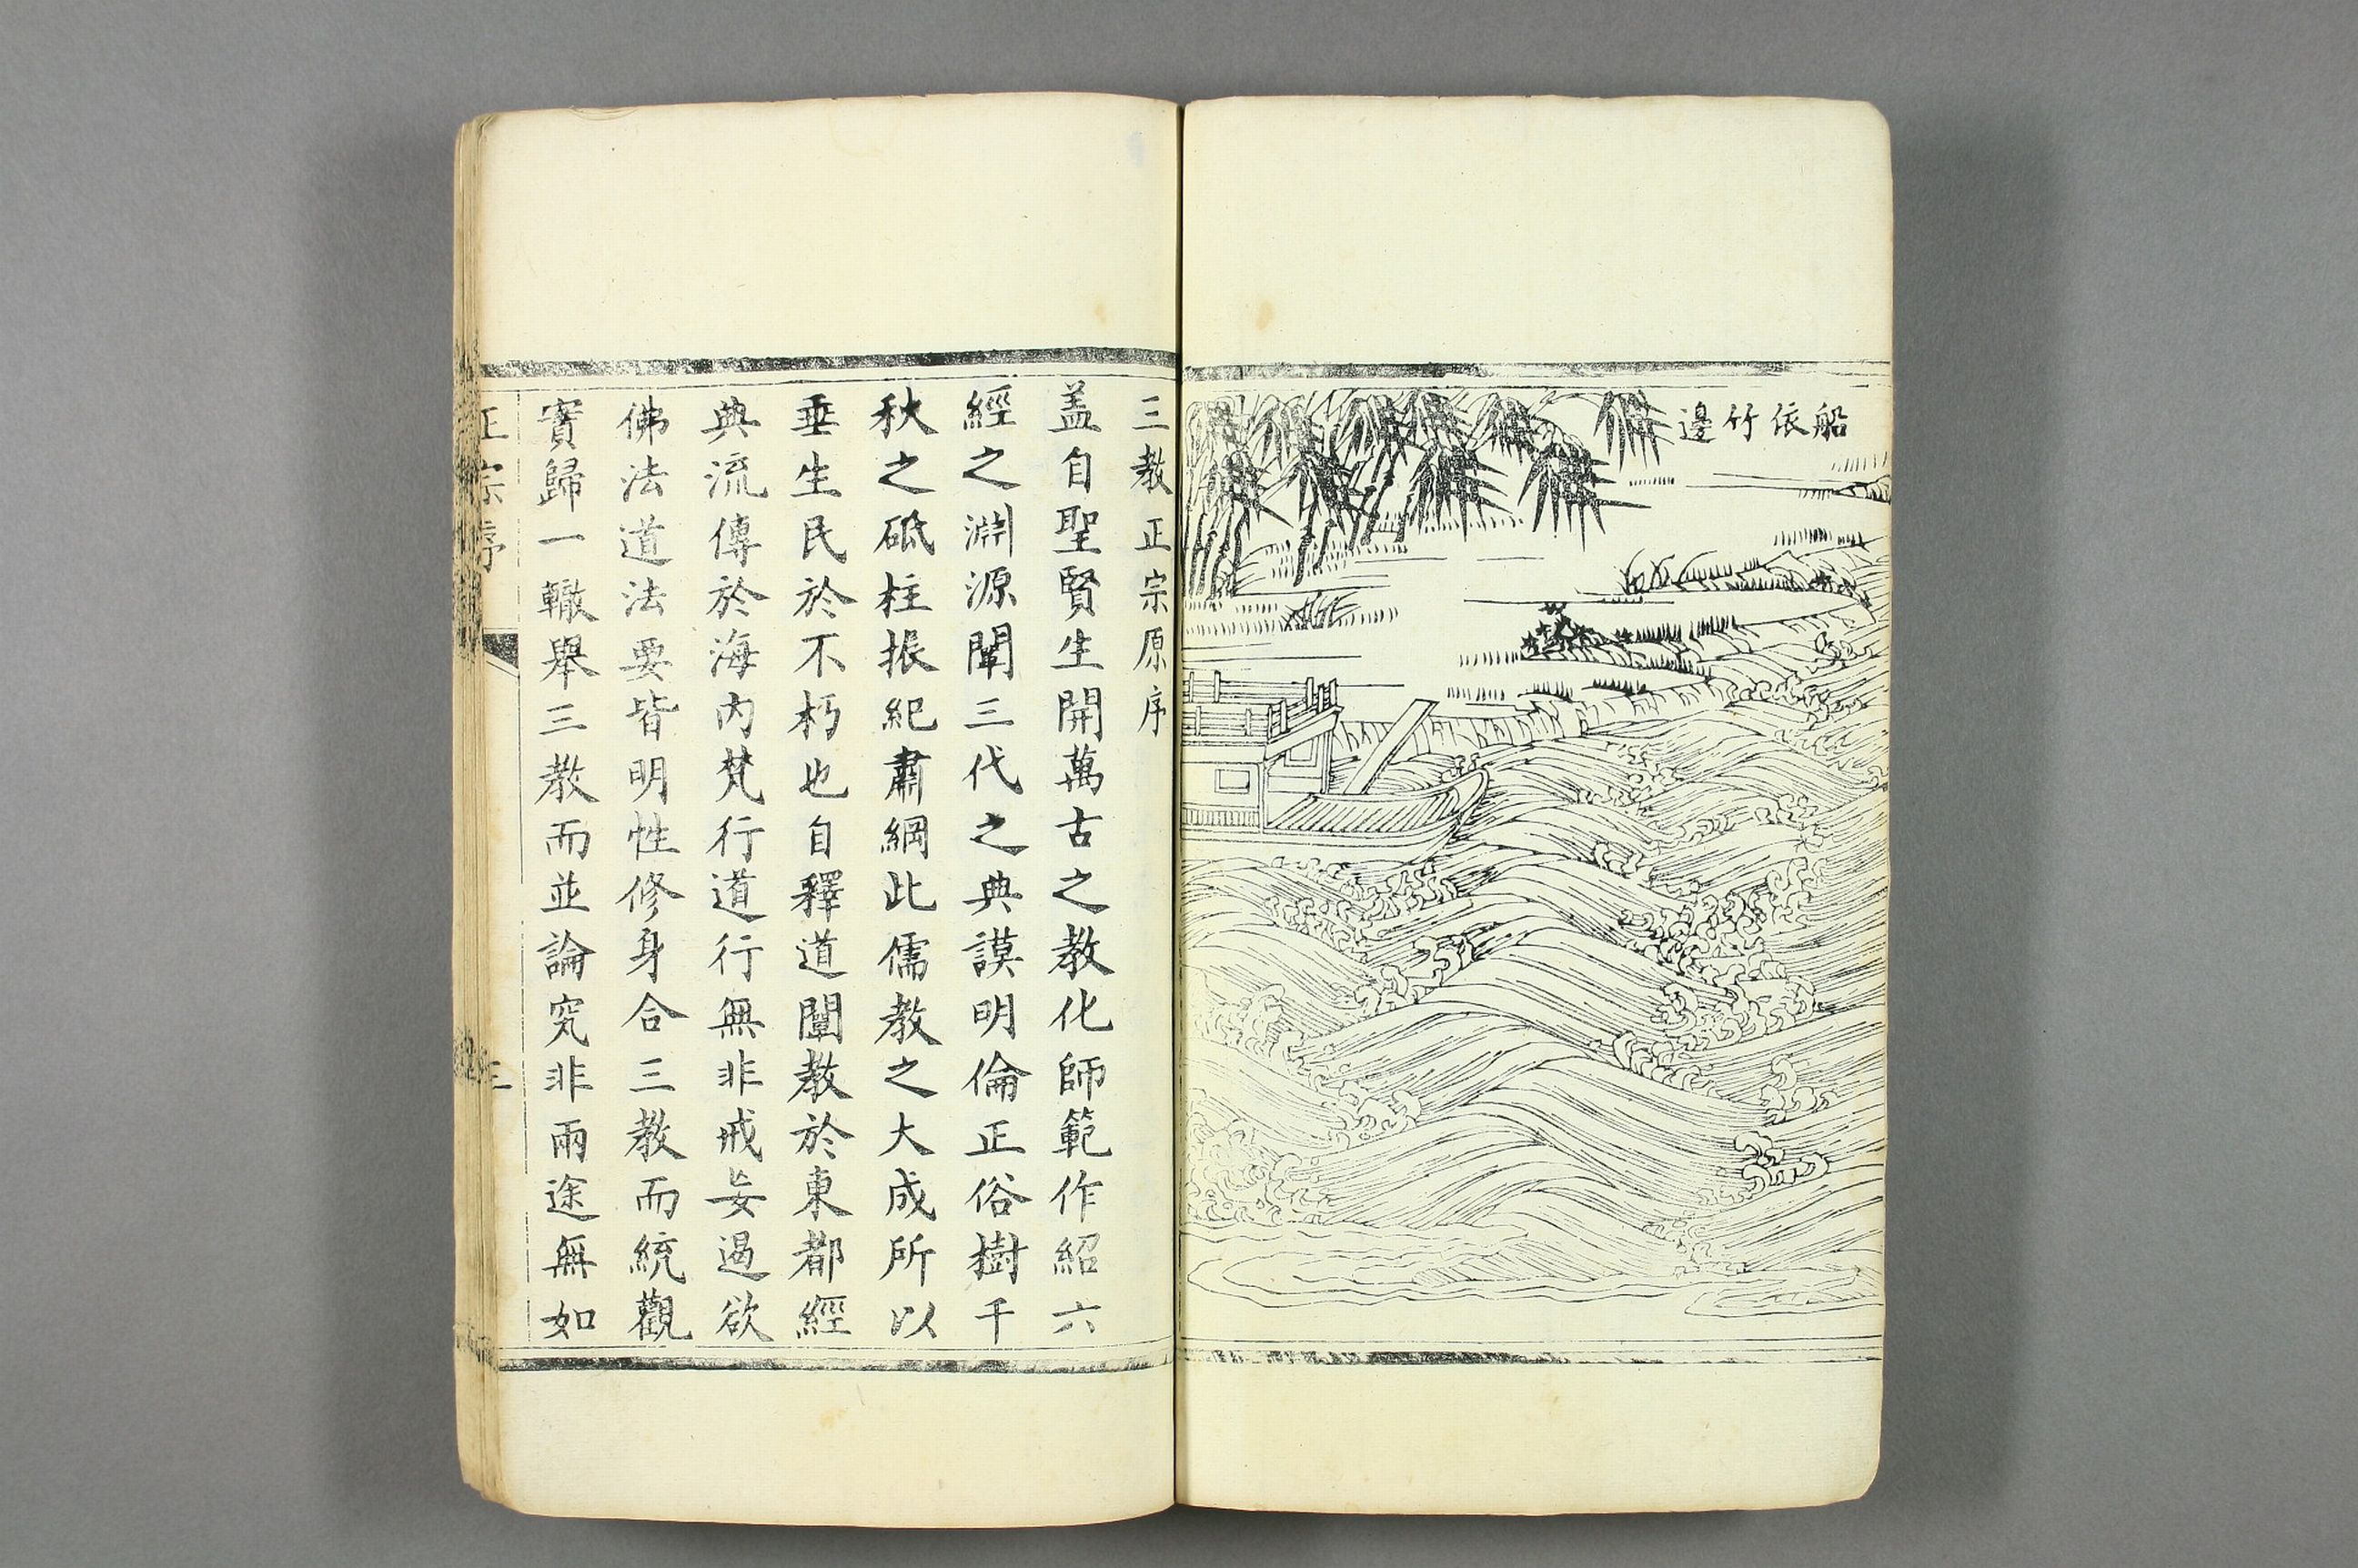 船依竹邊
三教正宗原序
盖自聖賢生開萬古之教化師範作紹六
經之淵源闡三代之典謨明倫正俗樹千
秋之砥柱振紀肅綱此儒教之大成所以
垂生民於不朽也自釋道闡教於東都經
典流傳於海內梵行道行無非戒妄遏欲
佛法道法要皆明性修身合三教而統觀
實歸一轍舉三教而並論究非兩途無如
正宗序
三